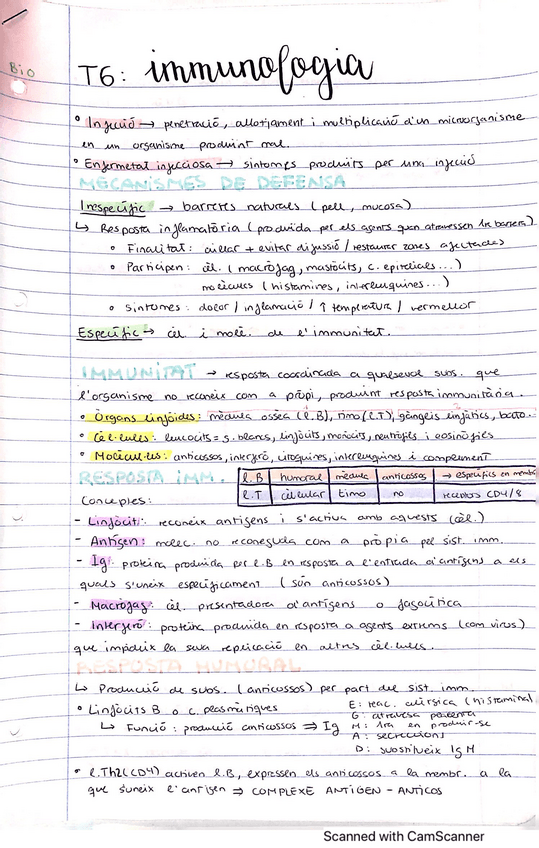 Bio
T6: immunologia
• Infecció → penetració, allotjament i multiplicació d'un microorganisme
en un organisme produint mal.
• Enfermetat infecciosa → símtomes produits per una infecció
MECANISMES DE DEFENSA
Inespecífic → barreres naturals (pell, mucosa)
↳ Resposta inflamatòria (produïda per els agents quan atravessen 1re barrera)
• Finalitat: aïllar + evitar difussió / restaurar zones afectades
• Participen: cèl. (macròfag, mastòcits, c. epitelials...)
molècules (histamines, interleuquines...)
• Símtomes: dolor / inflamació / ↑ temperatura / vermellor
Específic → cèl i molè. de l'immunitat.
IMMUNITAT → resposta coordinada a qualsevol subs. que
l'organisme no reconeix com a pròpi, produint resposta immunitària.
• Òrgans limfoides: mèdula ossèa (l.B), timo (l.T), gànglis limfàtics, bazo.
• Cèl·lules: leucocits = g. blancs, limfòcits, monòcits, neutròfils i eosinòfils
• Molècules: anticossos, interfró, citoquines, interleuquines i complement
RESPOSTA IMM.
l.B humoral mèdula anticossos → específics en membr
l.T cèl·lular timo no receptors CD4/8
Conceptes:
- Limfòcit: reconeix antígens i s'activa amb aquests (cèl.)
- Antígen: molec. no reconeguda com a pròpia pel sist. imm.
- Ig: proteïna produïda per l.B en resposta a l'entrada d'antígens a els
quals s'uneix específicament (són anticossos)
- Macròfag: cèl. presentadora d'antígens o fagocítica
- Interferó: proteïna produïda en resposta a agents externs (com virus)
que impideix la seva replicació en altres cèl·lules.
RESPOSTA HUMORAL
↳ Producció de subs. (anticossos) per part del sist. imm.
• Limfòcits B o c. plasmàtiques
↳ Funció: producció anticossos ⇒ Ig
E: reac. alèrgica (histamina)
G: atravesa placenta
M: 1ra en produir-se
A: secrecions
D: substitueix IgM
• l.Th2 (CD4) activen l.B, expressen els anticossos a la membr. a la
que s'uneix l'antígen ⇒ COMPLEXE ANTIGEN - ANTICOS
Scanned with CamScanner